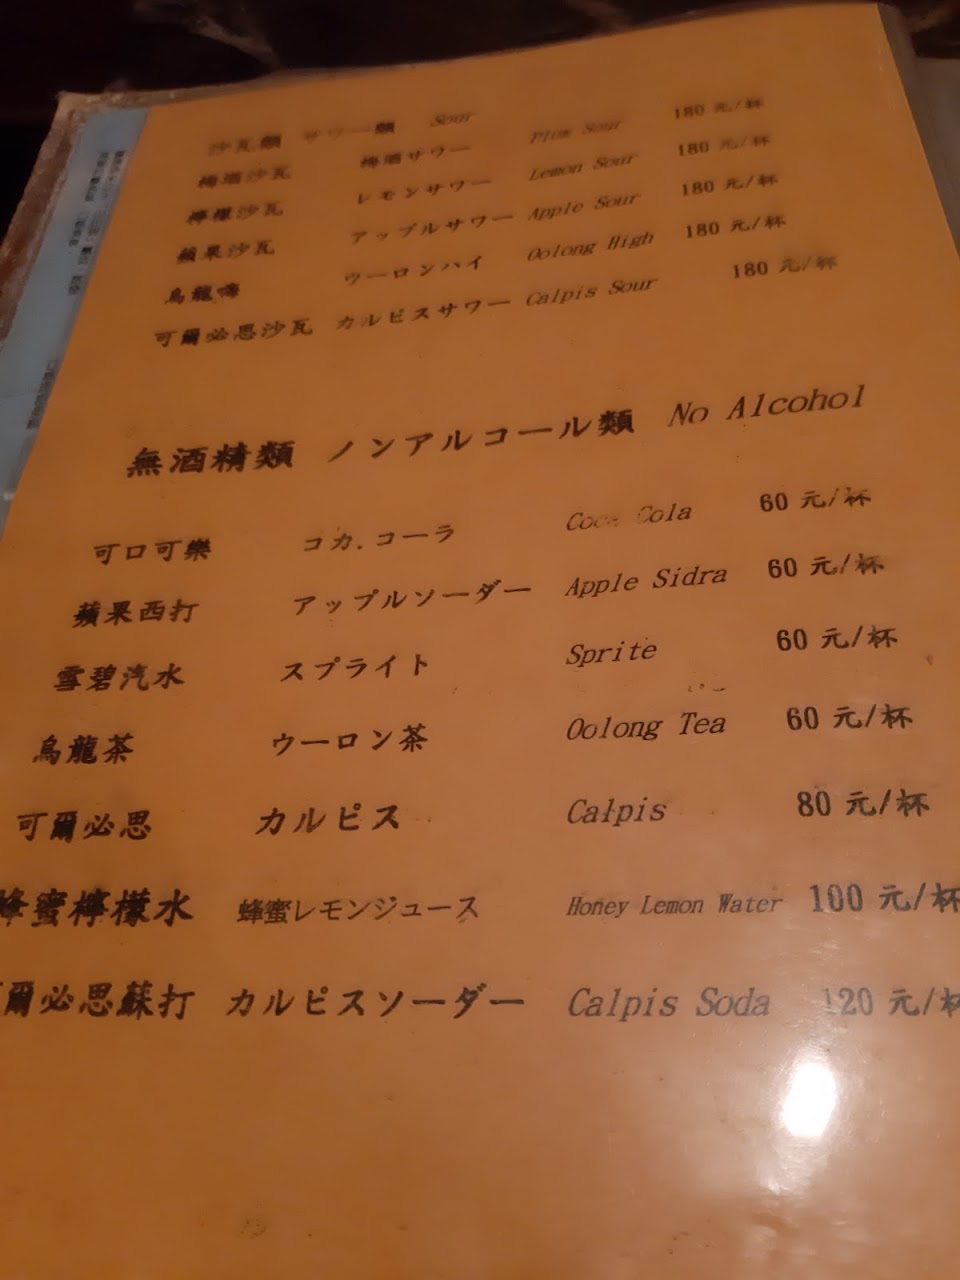 沙瓦類 サワー類 Sour
梅酒沙瓦 梅酒サワー Plum Sour 180 元/杯
檸檬沙瓦 レモンサワー Lemon Sour 180 元/杯
蘋果沙瓦 アップルサワー Apple Sour 180 元/杯
烏龍嗨 ウーロンハイ Oolong High 180 元/杯
可爾必思沙瓦 カルピスサワー Calpis Sour 180 元/杯
無酒精類 ノンアルコール類 No Alcohol
可口可樂 コカ.コーラ Coca Cola 60 元/杯
蘋果西打 アップルソーダー Apple Sidra 60 元/杯
雪碧汽水 スプライト Sprite 60 元/杯
烏龍茶 ウーロン茶 Oolong Tea 60 元/杯
可爾必思 カルピス Calpis 80 元/杯
蜂蜜檸檬水 蜂蜜レモンジュース Honey Lemon Water 100 元/杯
爾必思蘇打 カルピスソーダー Calpis Soda 120 元/杯